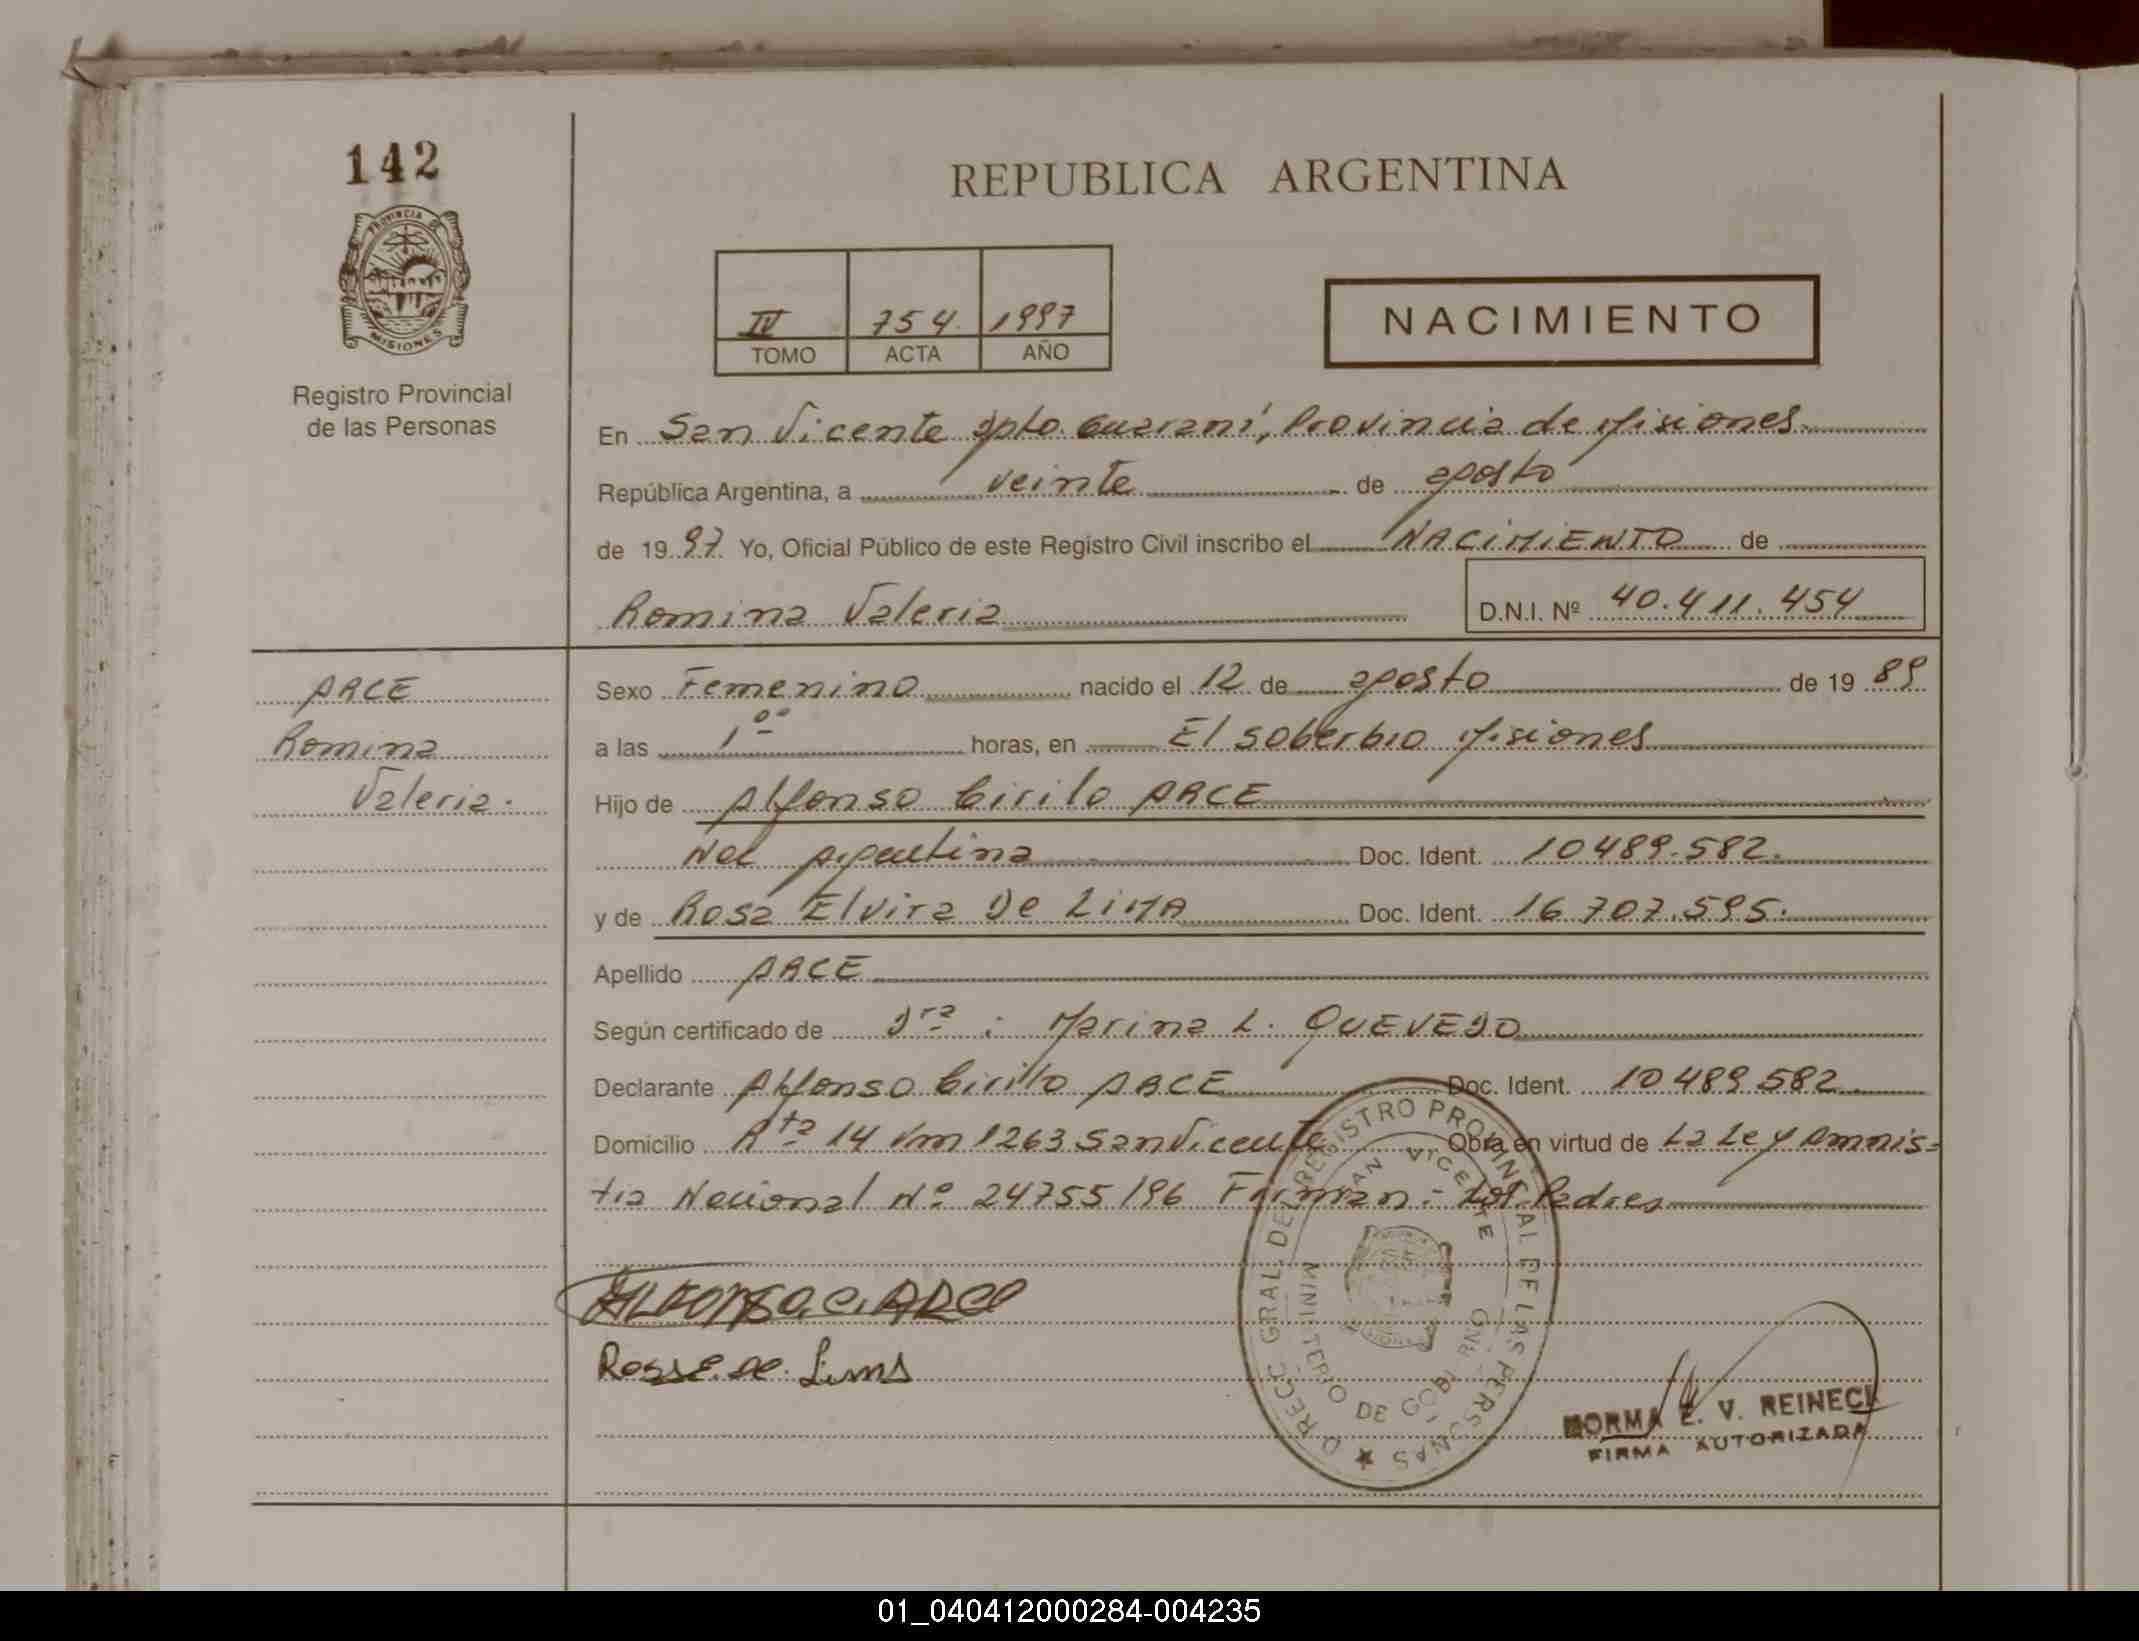 142
PROVINCIA
MISIONES
Registro Provincial
de las Personas
REPUBLICA ARGENTINA
IV 754 1997
TOMO ACTA AÑO
NACIMIENTO
En San Vicente Dpto Guaraní, Provincia de Misiones
República Argentina, a veinte de agosto
de 1997 Yo, Oficial Público de este Registro Civil inscribo el NACIMIENTO de
Romina Valeria D.N.I. Nº 40.411.454
ARCE
Romina
Valeria.
Sexo Femenino nacido el 12 de agosto de 1989
a las 1ºº horas, en El Soberbio Misiones
Hijo de Alfonso Cirilo ARCE
Nac Argentina Doc. Ident. 10489.582.
y de Rosa Elvira De LIMA Doc. Ident. 16 707.595.
Apellido ARCE
Según certificado de Dra: Marina L. QUEVEDO
Declarante Alfonso Cirilo ARCE Doc. Ident. 10 489 582.
Domicilio Rta 14 Km 1263 San Vicente Obra en virtud de La Ley Amnis=
tia Nacional Nº 24755/96 Firman: Los Padres
ALFONSO.C.ARCE
Rosa E. de Lima
REGISTRO PROVINCIAL DE LAS PERSONAS
SAN VICENTE
MINISTERIO DE GOBIERNO
NORMA E. V. REINECK
FIRMA AUTORIZADA
01_040412000284-004235